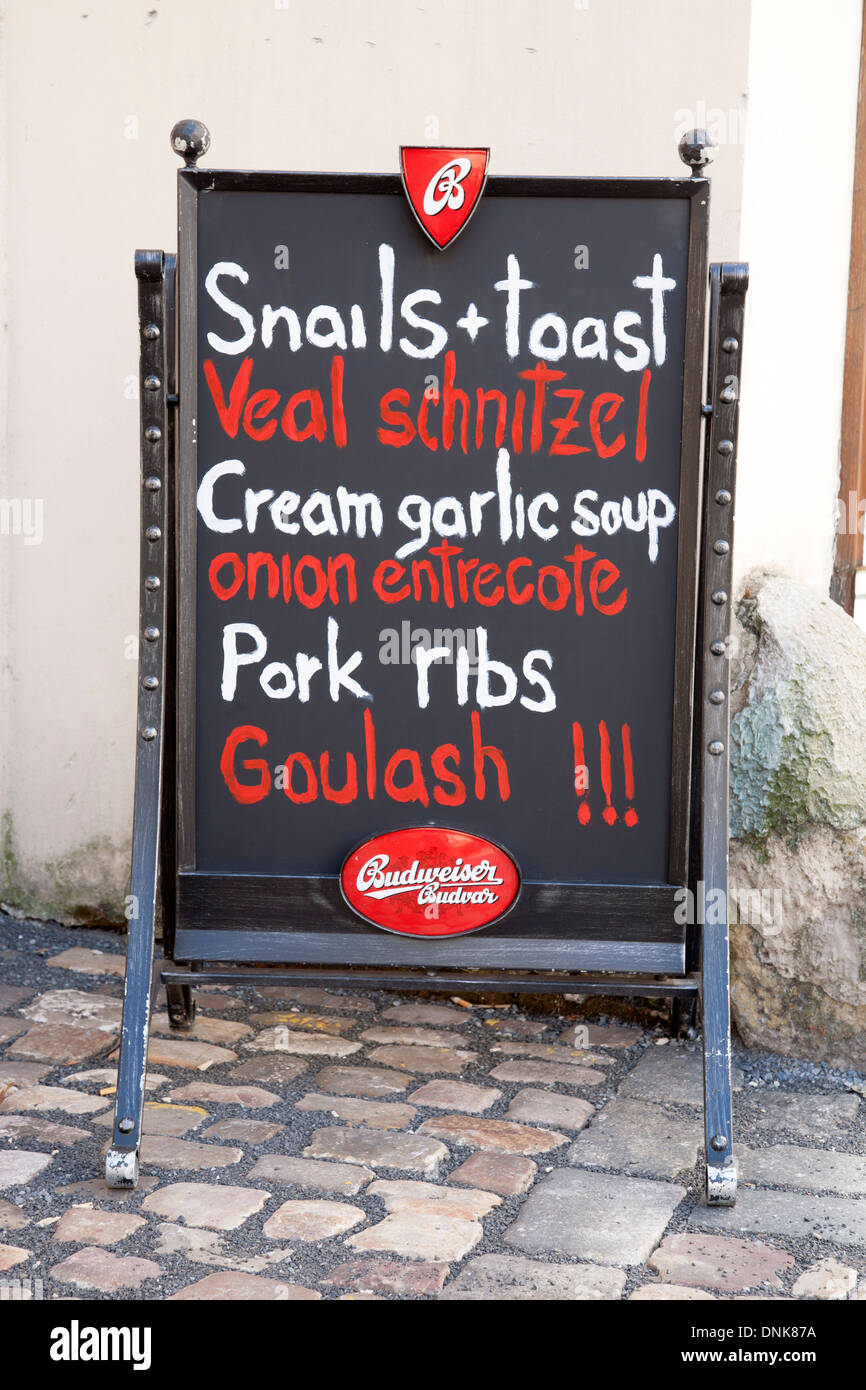 B
Snails + toast
Veal schnitzel
Cream garlic soup
onion entrecote
Pork ribs
Goulash !!!
Budweiser
Budvar
alamy
Image ID: DNK87A
www.alamy.com